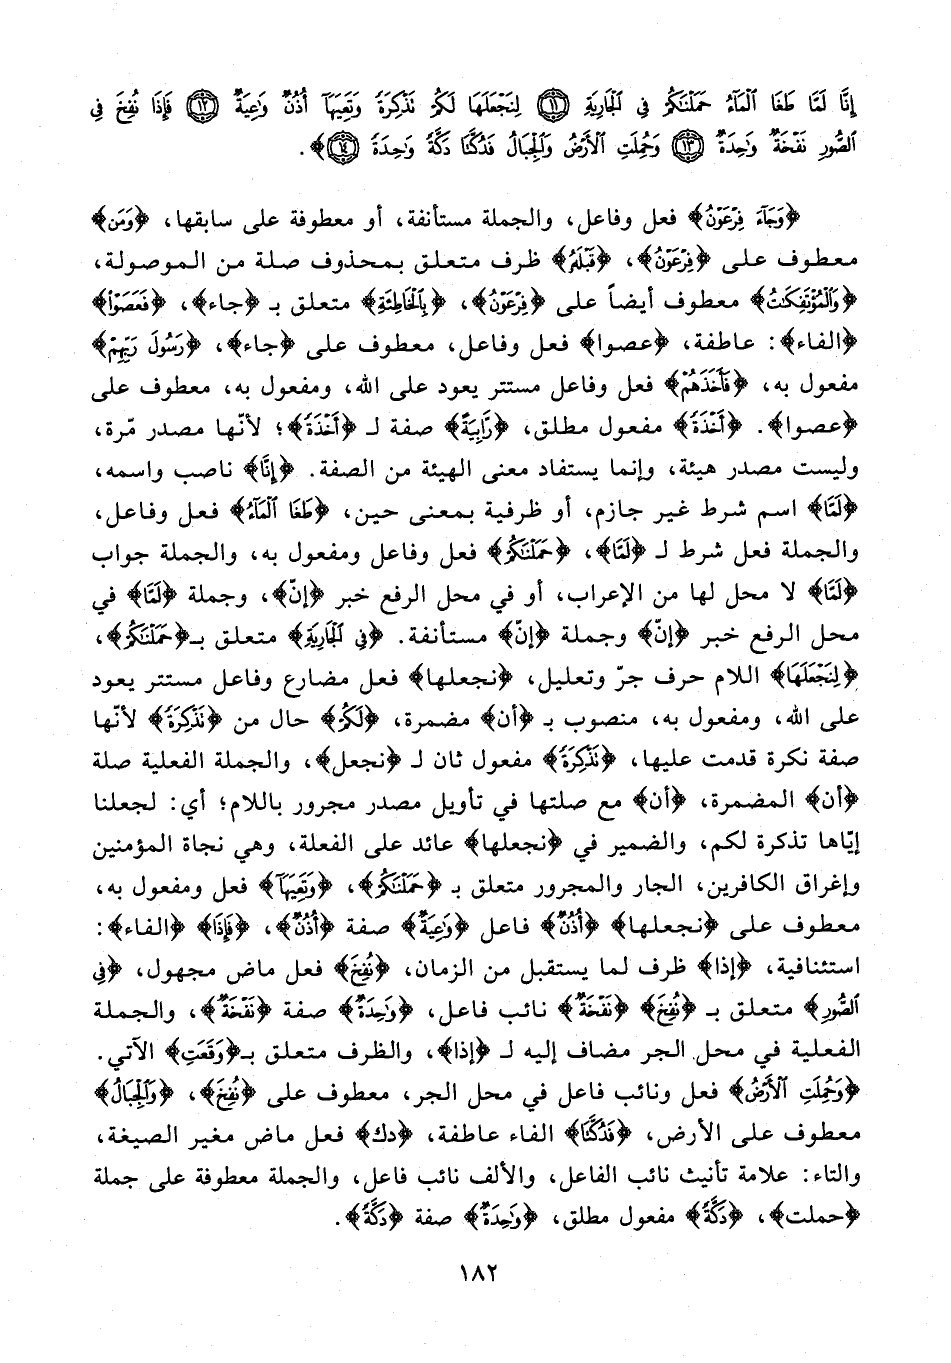 إِنَّا لَمَّا طَغَا ٱلْمَآءُ حَمَلْنَٰكُمْ فِي ٱلْجَارِيَةِ ﴿١١﴾ لِنَجْعَلَهَا لَكُمْ نَذْكِرَةً وَتَعِيَهَآ أُذُنٌ وَٰعِيَةٌ ﴿١٢﴾ فَإِذَا نُفِخَ فِي
ٱلصُّورِ نَفْخَةٌ وَٰحِدَةٌ ﴿١٣﴾ وَحُمِلَتِ ٱلْأَرْضُ وَٱلْجِبَالُ فَدُكَّنَا دَكَّةً وَٰحِدَةً ﴿١٤﴾﴾.
﴿وَجَآءَ فِرْعَوْنُ﴾ فعل وفاعل، والجملة مستأنفة، أو معطوفة على سابقها، ﴿وَمَن﴾
معطوف على ﴿فِرْعَوْنُ﴾، ﴿قَبْلَهُ﴾ ظرف متعلق بمحذوف صلة من الموصولة،
﴿وَٱلْمُؤْتَفِكَٰتُ﴾ معطوف أيضاً على ﴿فِرْعَوْنُ﴾، ﴿بِٱلْخَاطِئَةِ﴾ متعلق بـ ﴿جاء﴾، ﴿فَعَصَوْا﴾
﴿الفاء﴾: عاطفة، ﴿عصوا﴾ فعل وفاعل، معطوف على ﴿جاء﴾، ﴿رَسُولَ رَبِّهِمْ﴾
مفعول به، ﴿فَأَخَذَهُمْ﴾ فعل وفاعل مستتر يعود على الله، ومفعول به، معطوف على
﴿عصوا﴾. ﴿أَخْذَةً﴾ مفعول مطلق، ﴿رَّابِيَةً﴾ صفة لـ ﴿أَخْذَةً﴾؛ لأنّها مصدر مّرة،
وليست مصدر هيئة، وإنما يستفاد معنى الهيئة من الصفة. ﴿إِنَّا﴾ ناصب واسمه،
﴿لَمَّا﴾ اسم شرط غير جازم، أو ظرفية بمعنى حين، ﴿طَغَا ٱلْمَآءُ﴾ فعل وفاعل،
والجملة فعل شرط لـ ﴿لَمَّا﴾، ﴿حَمَلْنَٰكُمْ﴾ فعل وفاعل ومفعول به، والجملة جواب
﴿لَمَّا﴾ لا محل لها من الإعراب، أو في محل الرفع خبر ﴿إنّ﴾، وجملة ﴿لَمَّا﴾ في
محل الرفع خبر ﴿إنّ﴾ وجملة ﴿إنّ﴾ مستأنفة. ﴿فِي ٱلْجَارِيَةِ﴾ متعلق بـ﴿حَمَلْنَٰكُمْ﴾،
﴿لِنَجْعَلَهَا﴾ اللام حرف جرّ وتعليل، ﴿نجعلها﴾ فعل مضارع وفاعل مستتر يعود
على الله، ومفعول به، منصوب بـ ﴿أن﴾ مضمرة، ﴿لَكُمْ﴾ حال من ﴿نَذْكِرَةً﴾ لأنّها
صفة نكرة قدمت عليها، ﴿نَذْكِرَةً﴾ مفعول ثان لـ ﴿نجعل﴾، والجملة الفعلية صلة
﴿أن﴾ المضمرة، ﴿أن﴾ مع صلتها في تأويل مصدر مجرور باللام؛ أي: لجعلنا
إيّاها تذكرة لكم، والضمير في ﴿نجعلها﴾ عائد على الفعلة، وهي نجاة المؤمنين
وإغراق الكافرين، الجار والمجرور متعلق بـ ﴿حَمَلْنَٰكُمْ﴾، ﴿وَتَعِيَهَآ﴾ فعل ومفعول به،
معطوف على ﴿نجعلها﴾ ﴿أُذُنٌ﴾ فاعل ﴿وَٰعِيَةٌ﴾ صفة ﴿أُذُنٌ﴾، ﴿فَإِذَا﴾ ﴿الفاء﴾:
استئنافية، ﴿إذا﴾ ظرف لما يستقبل من الزمان، ﴿نُفِخَ﴾ فعل ماض مجهول، ﴿فِي
ٱلصُّورِ﴾ متعلق بـ ﴿نُفِخَ﴾ ﴿نَفْخَةٌ﴾ نائب فاعل، ﴿وَٰحِدَةٌ﴾ صفة ﴿نَفْخَةٌ﴾، والجملة
الفعلية في محل الجر مضاف إليه لـ ﴿إذا﴾، والظرف متعلق بـ﴿وَقَعَتِ﴾ الآتي.
﴿وَحُمِلَتِ ٱلْأَرْضُ﴾ فعل ونائب فاعل في محل الجر، معطوف على ﴿نُفِخَ﴾، ﴿وَٱلْجِبَالُ﴾
معطوف على الأرض، ﴿فَدُكَّنَا﴾ الفاء عاطفة، ﴿دك﴾ فعل ماض مغير الصيغة،
والتاء: علامة تأنيث نائب الفاعل، والألف نائب فاعل، والجملة معطوفة على جملة
﴿حملت﴾، ﴿دَكَّةً﴾ مفعول مطلق، ﴿وَٰحِدَةً﴾ صفة ﴿دَكَّةً﴾.
١٨٢